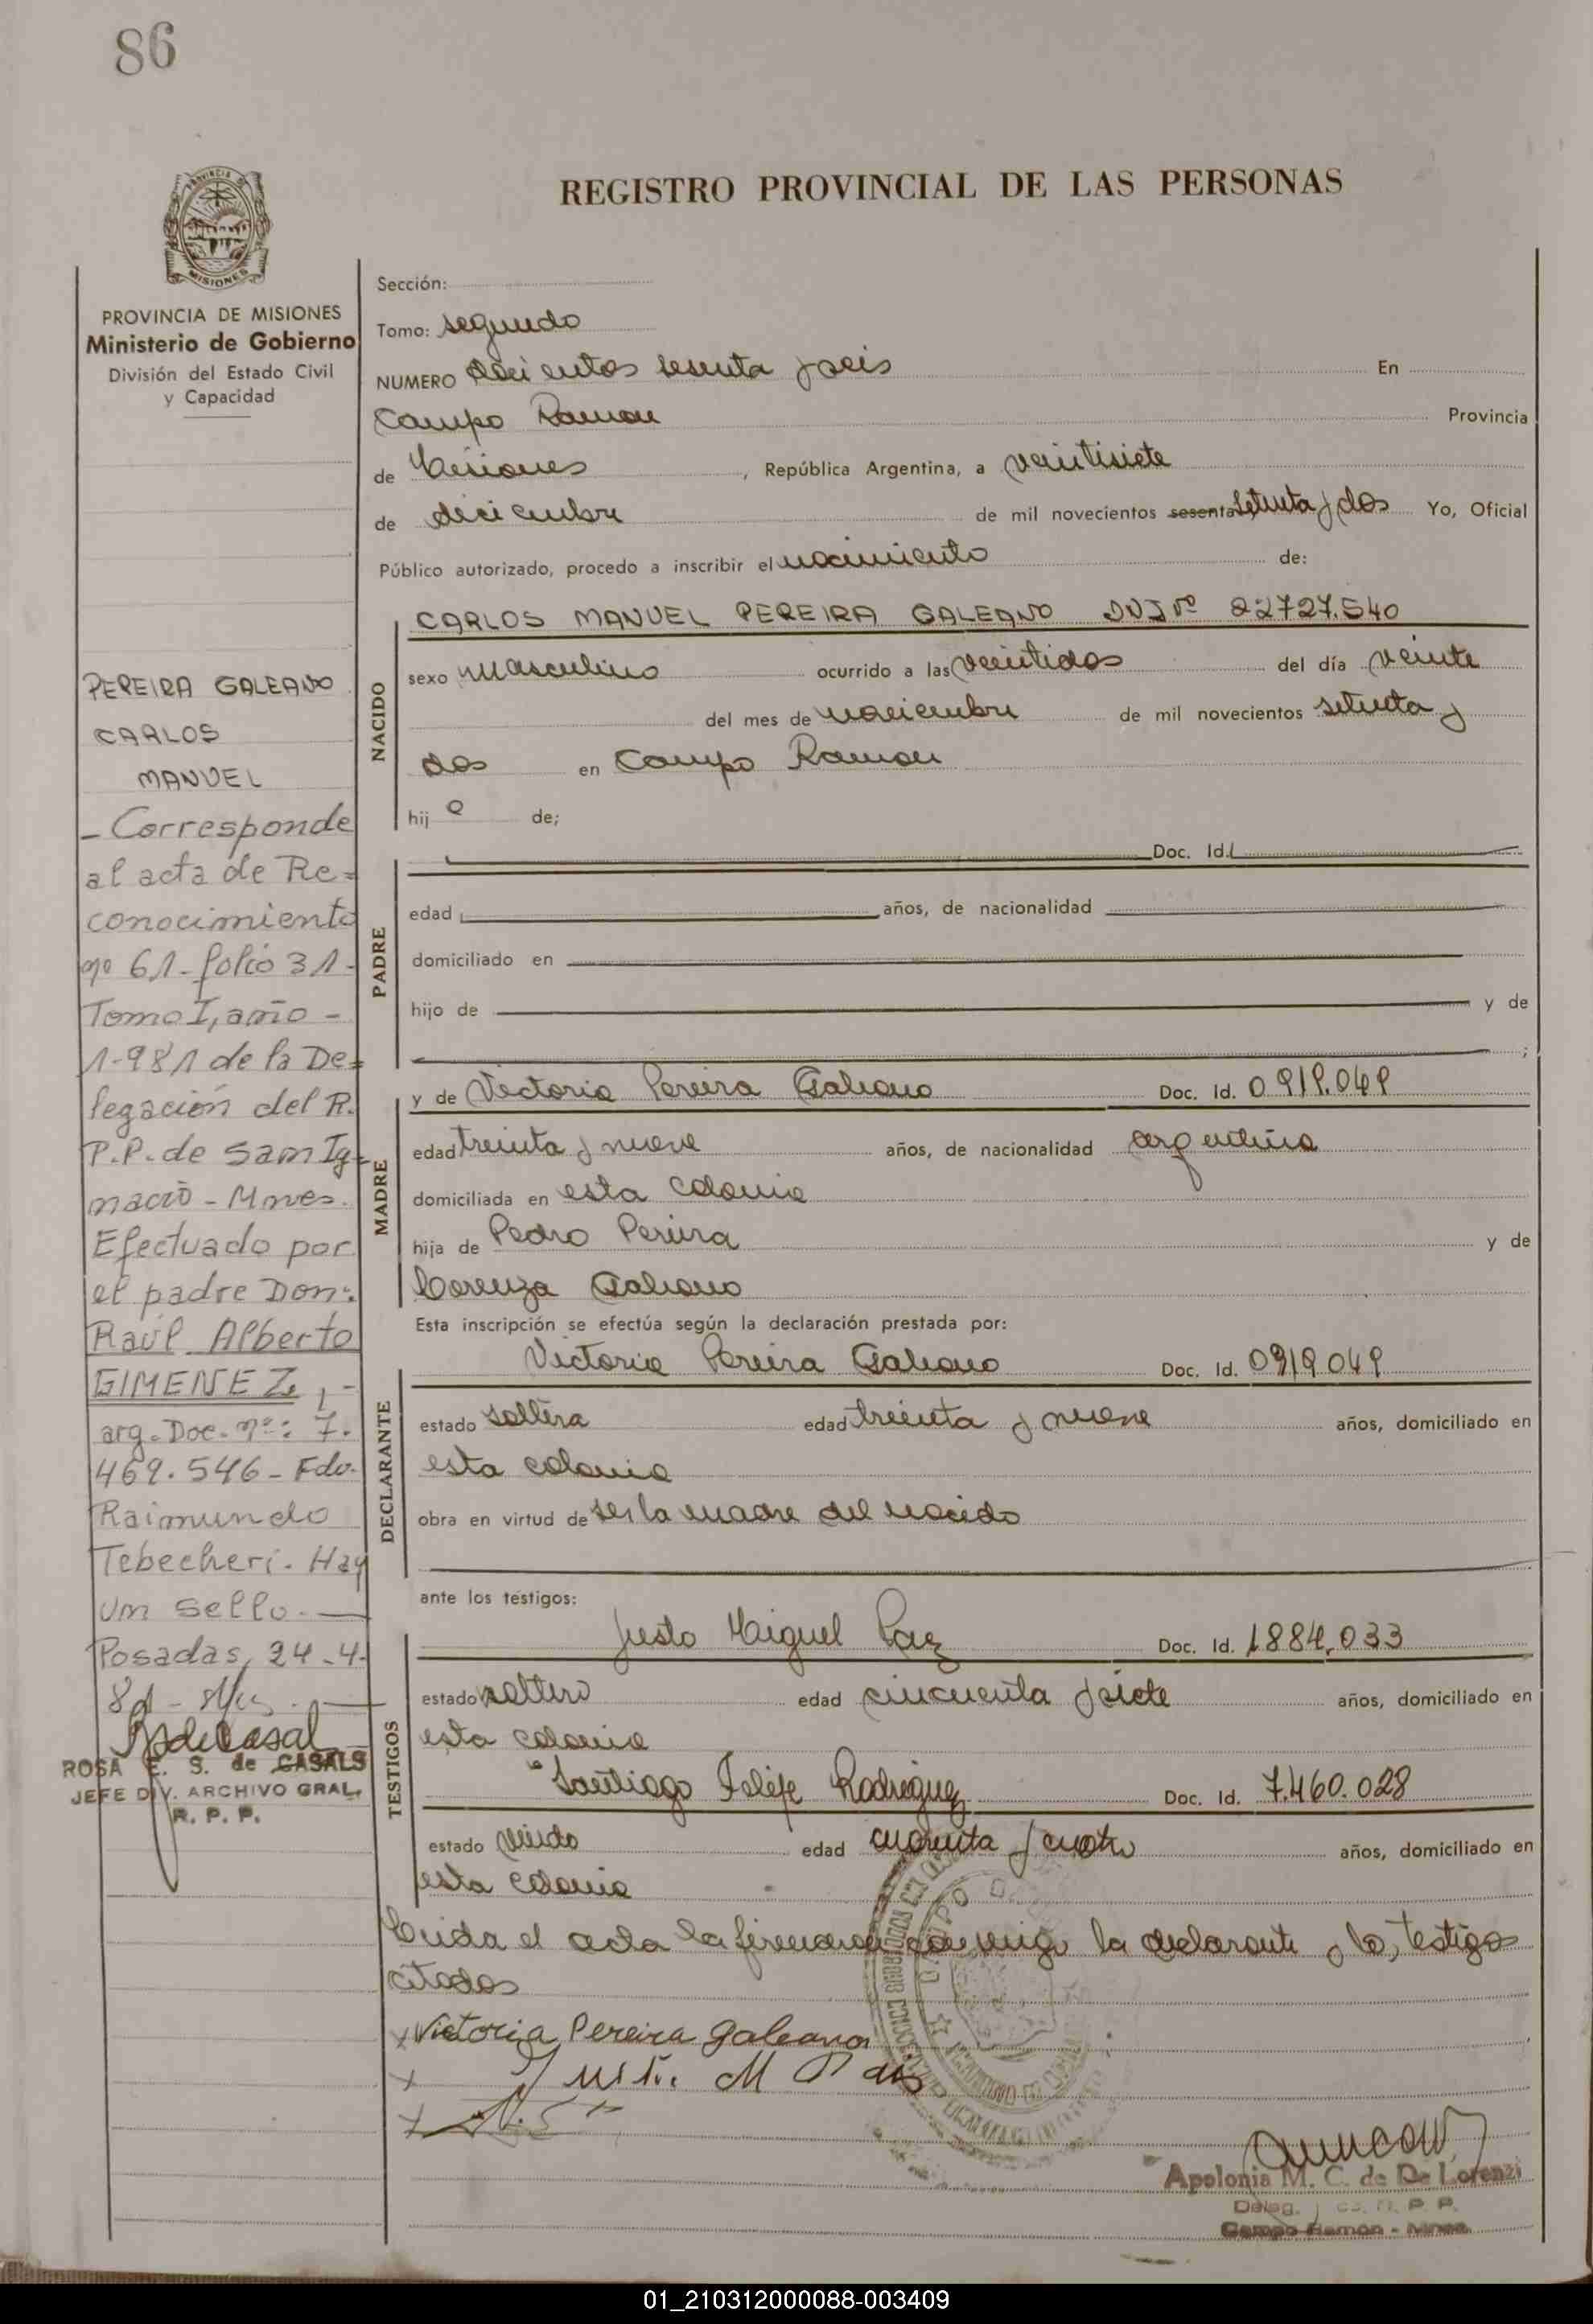 86
REGISTRO PROVINCIAL DE LAS PERSONAS
PROVINCIA DE MISIONES
MISIONES
PROVINCIA DE MISIONES
Ministerio de Gobierno
División del Estado Civil
y Capacidad
PEREIRA GALEANO
CARLOS
MANUEL
- Corresponde
al acta de Re=
conocimiento
nº 61- folio 31-
Tomo I, año -
1.981 de la De=
legación del R.
P.P. de San Ig=
nacio - Mnes.
Efectuado por
el padre Don:
Raúl Alberto
GIMENEZ, -
arg. Doc. nº: 7.
469.546 - Fdo.
Raimundo
Tebecheri. Hay
un sello. —
Posadas, 24-4-
81 -
ROSA E. S. de CASALS
JEFE DIV. ARCHIVO GRAL.
R. P. P.
Sección:
Tomo: segundo
NUMERO docientos sesenta y seis En
Campo Ramon Provincia
de Misiones, República Argentina, a veintisiete
de diciembre de mil novecientos sesenta setenta y dos Yo, Oficial
Público autorizado, procedo a inscribir el nacimiento de:
NACIDO
CARLOS MANUEL PEREIRA GALEANO DNI Nº 22727.540
sexo masculino ocurrido a las veintidos del día veinte
del mes de noviembre de mil novecientos setenta y
dos en Campo Ramon
hij o de;
PADRE
Doc. Id.
edad años, de nacionalidad
domiciliado en
hijo de y de
;
MADRE
y de Victoria Pereira Galeano Doc. Id. 0919.049
edad treinta y nueve años, de nacionalidad argentina
domiciliada en esta colonia
hija de Pedro Pereira y de
Lorenza Galeano
Esta inscripción se efectúa según la declaración prestada por:
DECLARANTE
Victoria Pereira Galeano Doc. Id. 0919.049
estado soltera edad treinta y nueve años, domiciliado en
esta colonia
obra en virtud de ser la madre del nacido
ante los testigos:
TESTIGOS
Justo Miguel Paz Doc. Id. 1884.033
estado soltero edad cincuenta y siete años, domiciliado en
esta colonia
Santiago Felipe Rodriguez Doc. Id. 7.460.028
estado viudo edad cuarenta y cuatro años, domiciliado en
esta colonia
Leida el acta la firmaran conmigo la declarante y los testigos
citados
x Victoria Pereira galeano
x
x
Apolonia M. C. de De Lorenzi
Deleg. R. P. P.
Campo Ramón - Mnes.
01_210312000088-003409